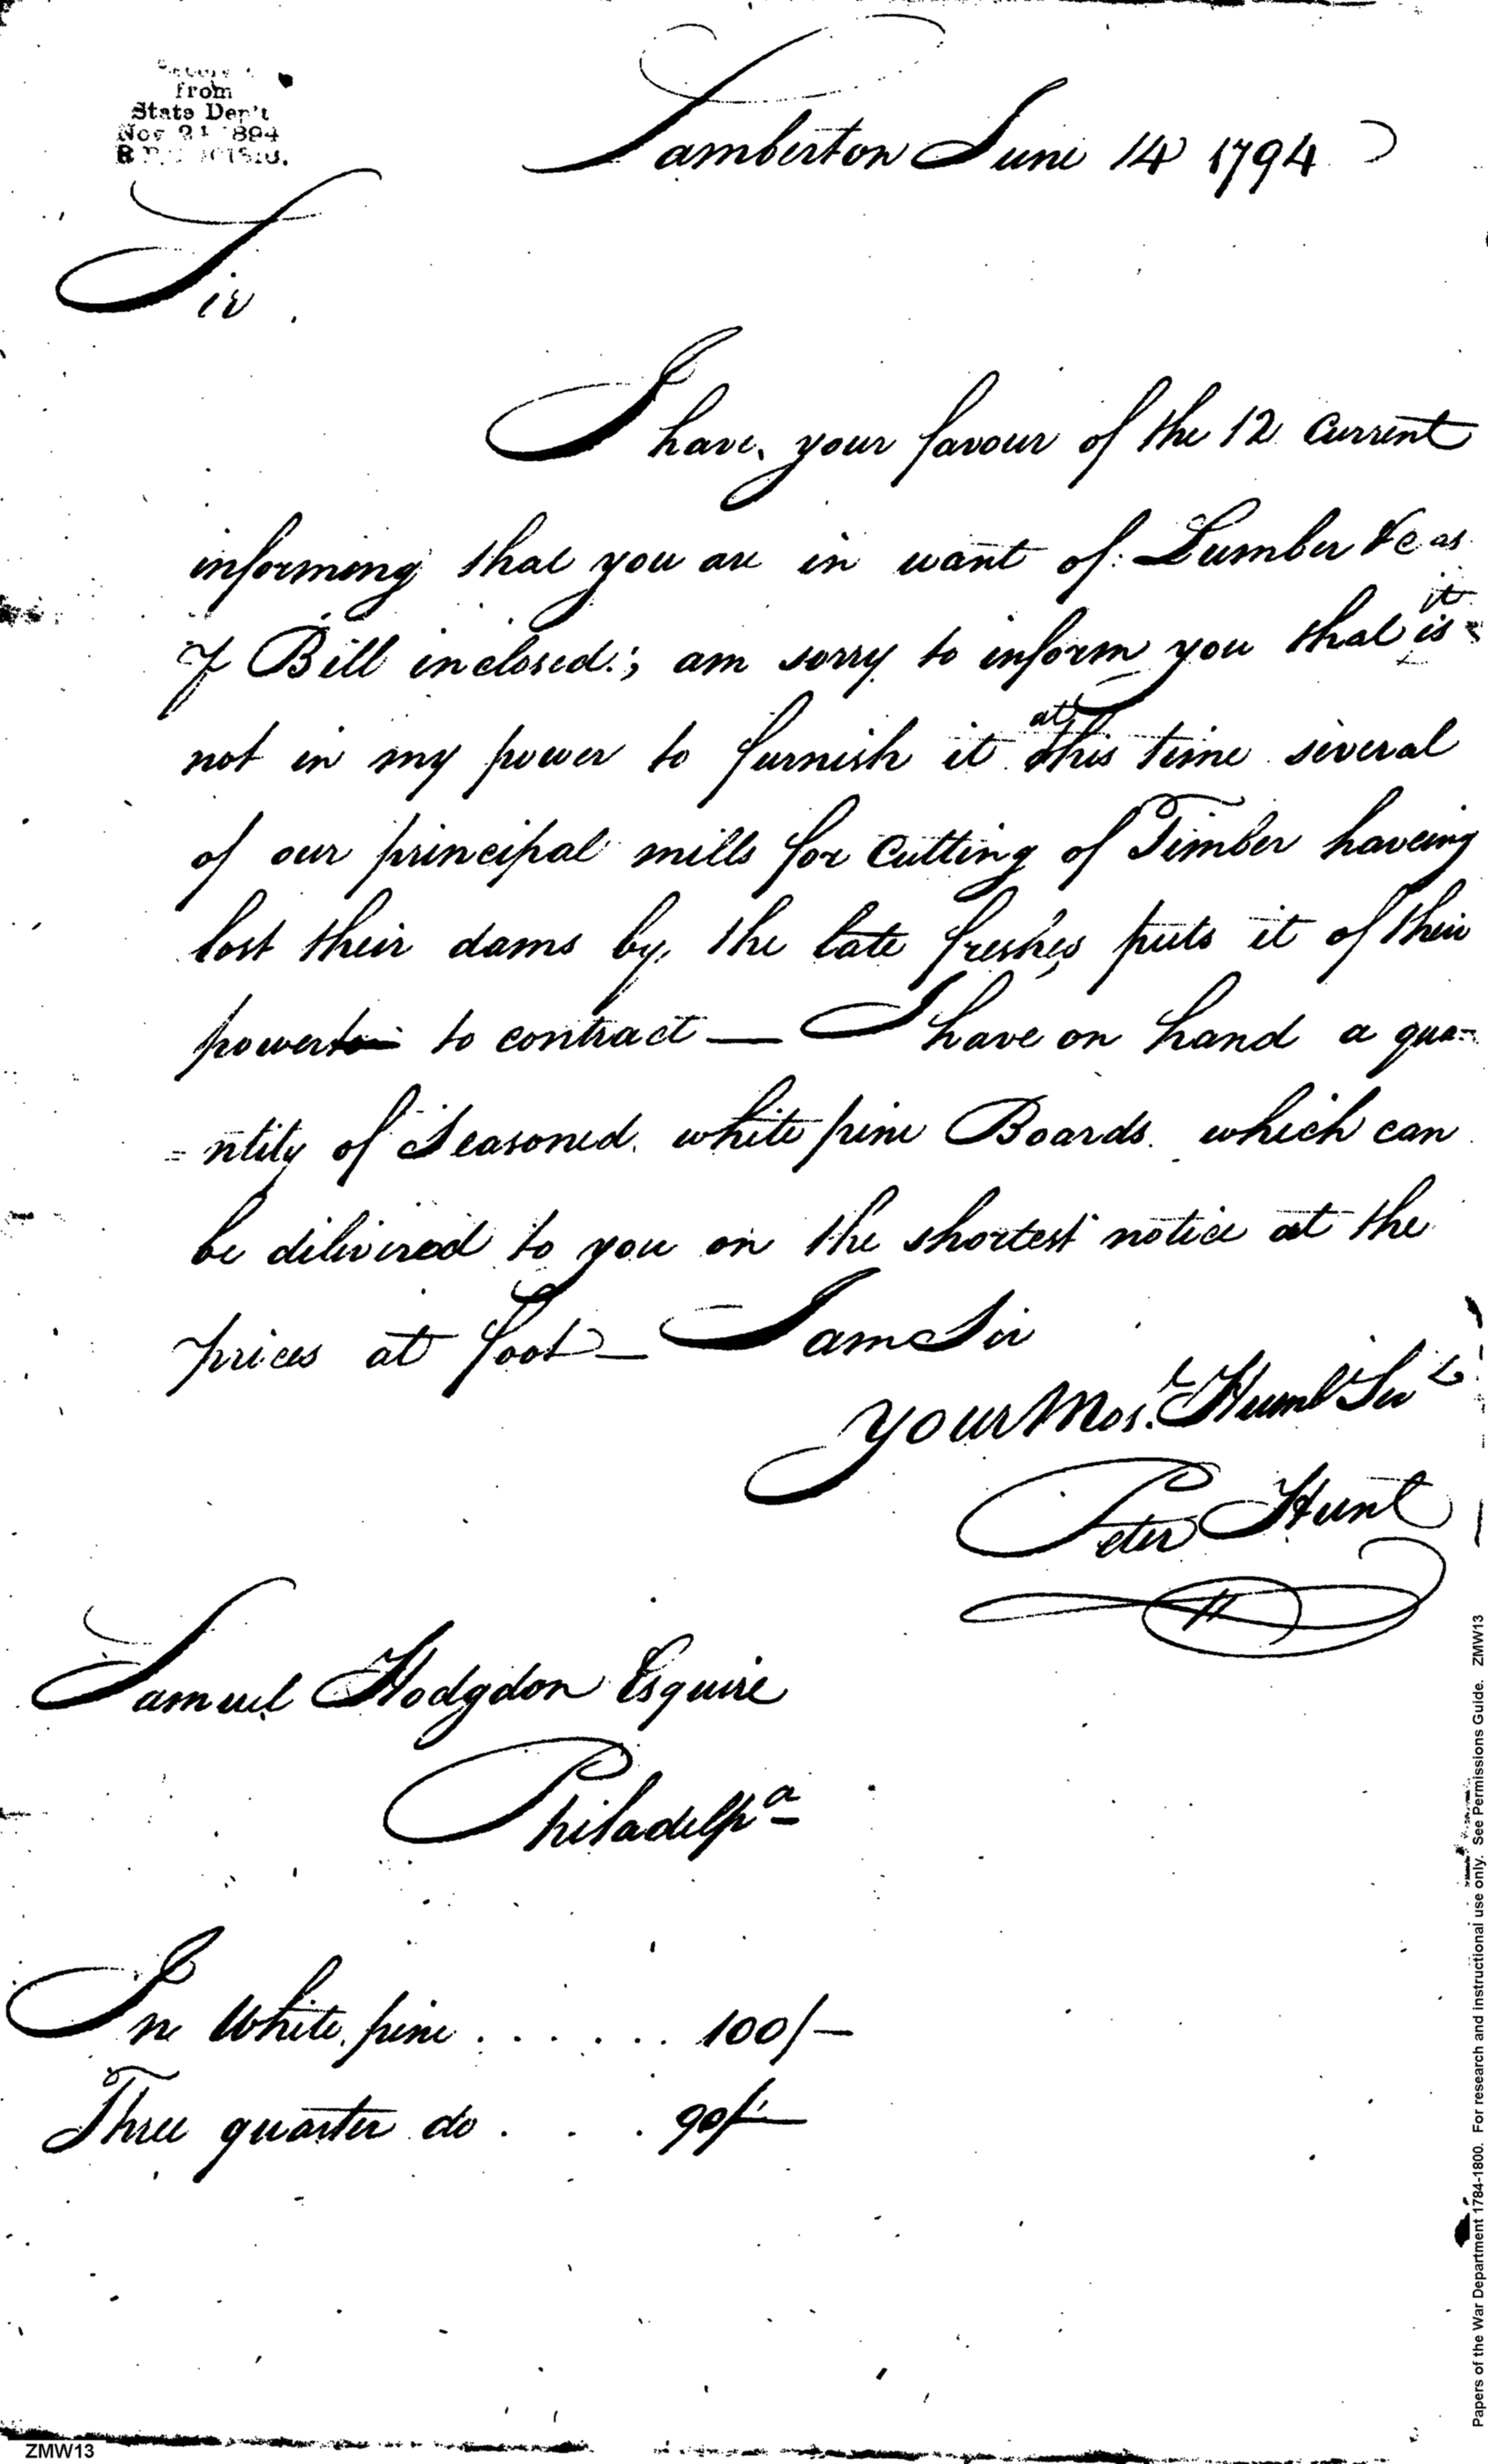 from
State Dep't
Lamberton June 14 1794
Sir
I have your favour of the 12 Current
informing that you are in want of Lumber &c as
⅌ Bill inclosed; am sorry to inform you that it is
not in my power to furnish it at this time several
of our principal mills for Cutting of Timber haveing
lost their dams by the late freshes puts it of their
power to to contract — I have on hand a qua=
=ntity of Seasoned white pine Boards which can
be delivered to you on the shortest notice at the
prices at foot — I am Sir
your Mos.t Humbl Sert
Peter Hunt
Samuel Hodgdon Esquire
Philadelpa
In White pine ...... 100/—
Three quarter do . . . 90/—
Papers of the War Department 1784-1800. For research and instructional use only. See Permissions Guide. ZMW13
ZMW13